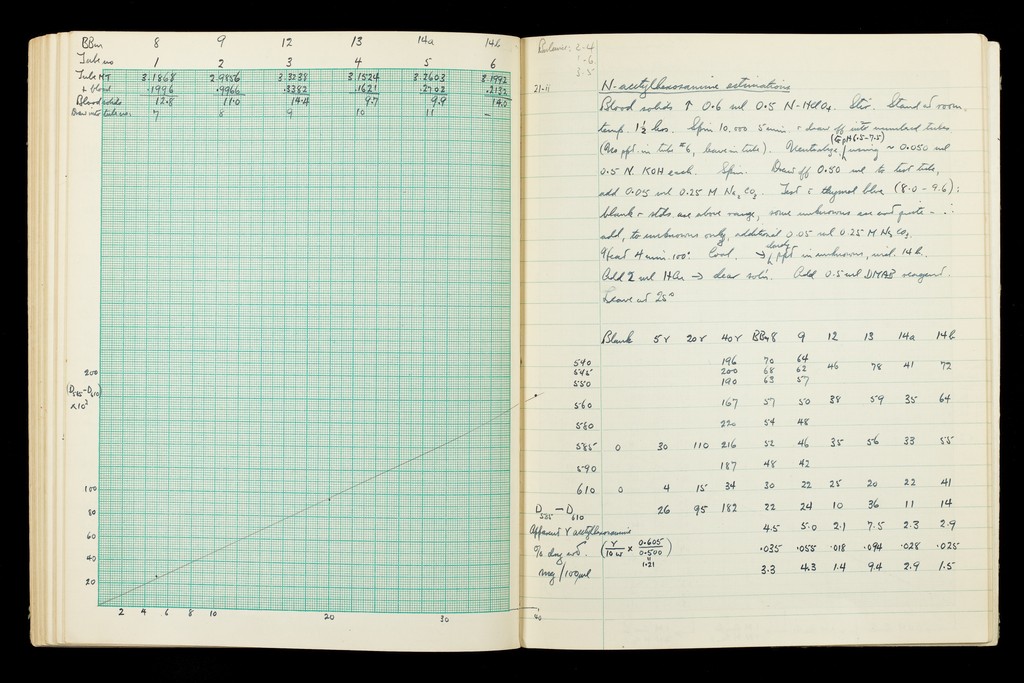 BBm 8 9 12 13 14a 14b
Tube no 1 2 3 4 5 6
Tube MT 3.1868 2.9856 3.3238 3.1524 3.2603 3.1992
+ blood .1996 .9966 .3382 .1621 .2702 .2132
Blood solids 12.8 11.0 14.4 9.7 9.9 14.0
Draw into tube no. 7 8 9 10 11 –
200
(D585–D610)
x10³
100
80
60
40
20
2 4 6 8 10 20 30 40
2-4
1.6
3.5
21.ii N-acetylhexosamine estimations
Blood solids ↑ 0.6 ml 0.5 N-HClO4. Stir. Stand at room
temp. 1½ hrs. Spin 10,000 5 min. + draw off into numbered tubes
(No ppt. in tube #6, leave in tube). Neutralize (to pH 6.5-7.5) using ~ 0.050 ml
0.5 N. KOH each. Spin. Draw off 0.50 ml to test tube,
add 0.05 ml 0.25 M Na2CO3. Test c thymol blue (8.0 – 9.6):
blank + stds. are above range, some unknowns are not quite – ∴
add, to unknowns only, additional 0.05 ml 0.25 M Na2CO3.
Heat 4 min. 100°. Cool. → cloudy ppt in unknowns, incl. 14b.
Add 2 ml HAc → clear soln. Add 0.5 ml DMAB reagent.
Leave at 25°
Blank 5γ 20γ 40γ BBm8 9 12 13 14a 14b
540 196 70 64
545 200 68 62 46 78 41 72
550 190 63 57
560 167 57 50 38 59 35 64
580 220 54 48
585 0 30 110 216 52 46 35 56 33 55
590 187 48 42
610 0 4 15 34 30 22 25 20 22 41
D585 – D610 26 95 182 22 24 10 36 11 14
Apparent γ acetylhexosamine 4.5 5.0 2.1 7.5 2.3 2.9
% dry wt. (γ/10w × 0.605/0.500) .035 .055 .018 .094 .028 .025
1.21
mg/100ml 3.3 4.3 1.4 9.4 2.9 1.5